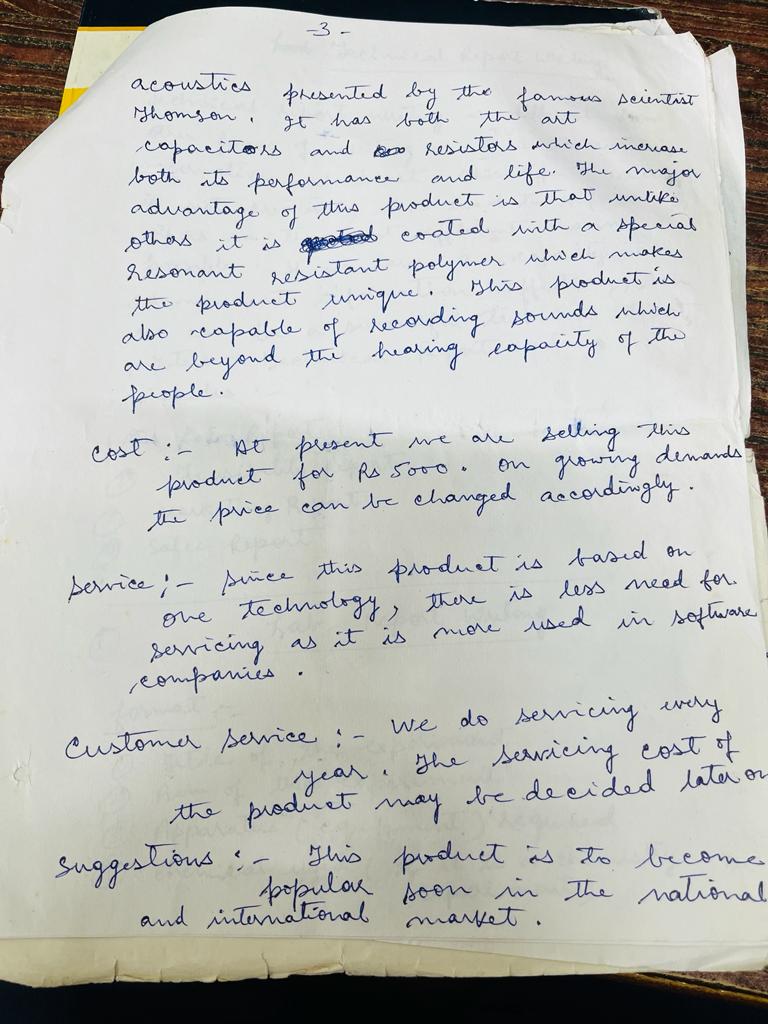 -3-
acoustics presented by the famous scientist
Thomson. It has both the art
capacitors and resistors which increase
both its performance and life. The major
advantage of this product is that unlike
others it is coated with a special
resonant resistant polymer which makes
the product unique. This product is
also capable of recording sounds which
are beyond the hearing capacity of the
people.
Cost :- At present we are selling this
product for Rs 5000. On growing demands
the price can be changed accordingly.
Service :- Since this product is based on
one technology, there is less need for
servicing as it is more used in software
companies.
Customer Service :- We do servicing every
year. The servicing cost of
the product may be decided later on
Suggestions :- This product is to become
popular soon in the national
and international market.